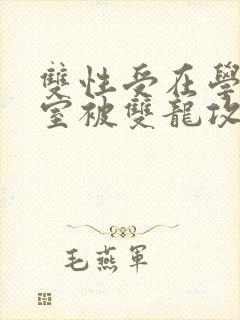 雙性受在學
室被雙龍攻
毛燕軍